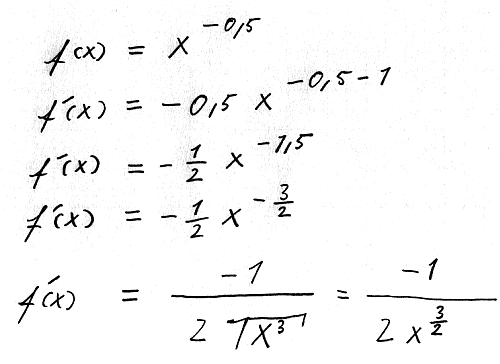 f(x) = x^{-0,5}
f'(x) = -0,5 x^{-0,5-1}
f'(x) = -\frac{1}{2} x^{-1,5}
f'(x) = -\frac{1}{2} x^{-\frac{3}{2}}
f'(x) = \frac{-1}{2\sqrt{x^3}} = \frac{-1}{2x^{\frac{3}{2}}}